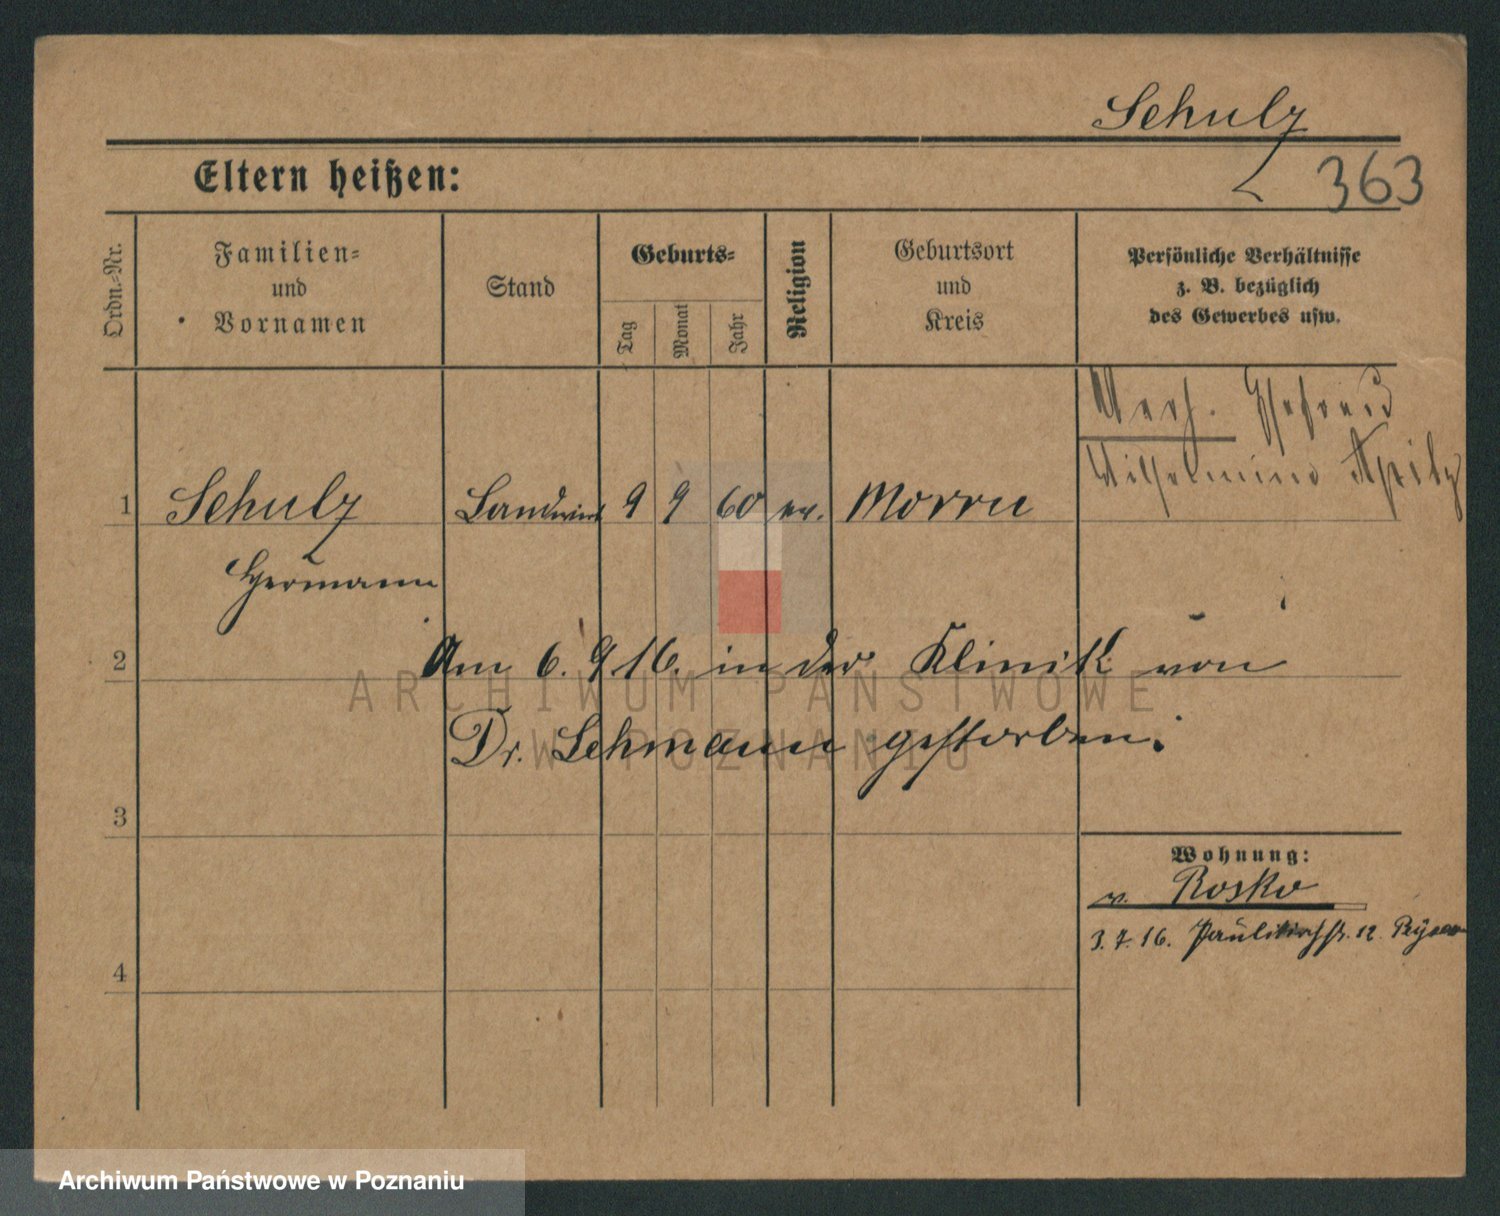 Schulz
363
Eltern heißen:
Ordn.-Nr.
Familien-
und
Vornamen
Stand
Geburts-
Tag
Monat
Jahr
Religion
Geburtsort
und
Kreis
Persönliche Verhältnisse
z. B. bezüglich
des Gewerbes usw.
Verh. Ehefrau
Wilhelmine
1 Schulz Landwirt 9 9 60 ev. Morrn
Hermann
2 Am 6. 9 16. in der Klinik von
Dr. Lehmann gestorben.
3
4
Wohnung:
v. Rosko
3. 7. 16. Paulikirchstr. 12.
ARCHIWUM PAŃSTWOWE
W POZNANIU
Archiwum Państwowe w Poznaniu